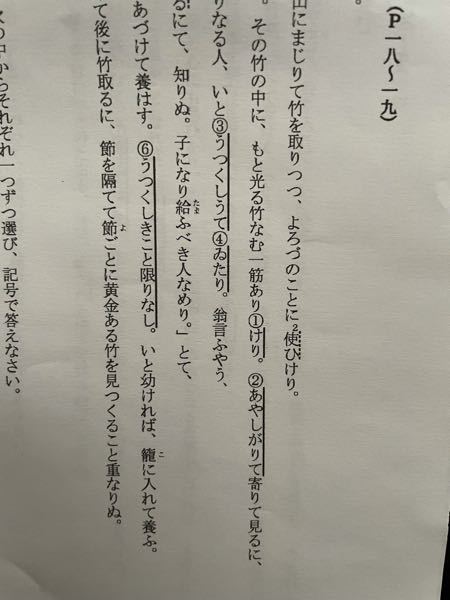 （P一八〜一九）
山にまじりて竹を取りつつ、よろづのことに使ひけり。
。その竹の中に、もと光る竹なむ一筋あり①けり。②あやしがりて寄りて見るに、
りなる人、いと③うつくしうて④ゐたり。翁言ふやう、
るにて、知りぬ。子になり給ふべき人なめり。」とて、
あづけて養はす。⑥うつくしきこと限りなし。いと幼ければ、籠に入れて養ふ。
て後に竹取るに、節を隔てて節ごとに黄金ある竹を見つくること重なりぬ。
の中からそれぞれ一つずつ選び、記号で答えなさい。